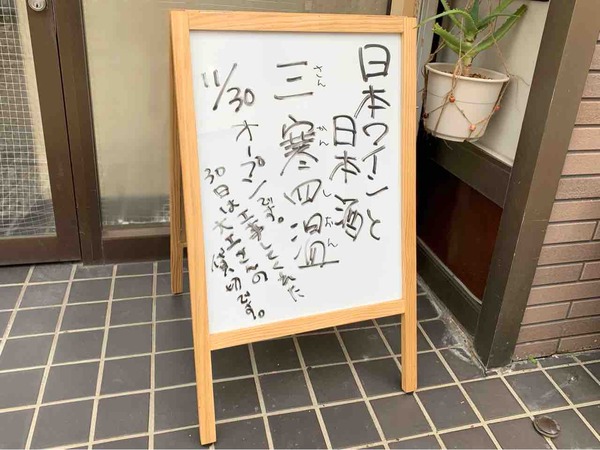 日本ワインと
日本酒
さんかんしおん
三寒四温
11/30 オープンです。
工事してくれた
30日は大工さんの
貸切です。